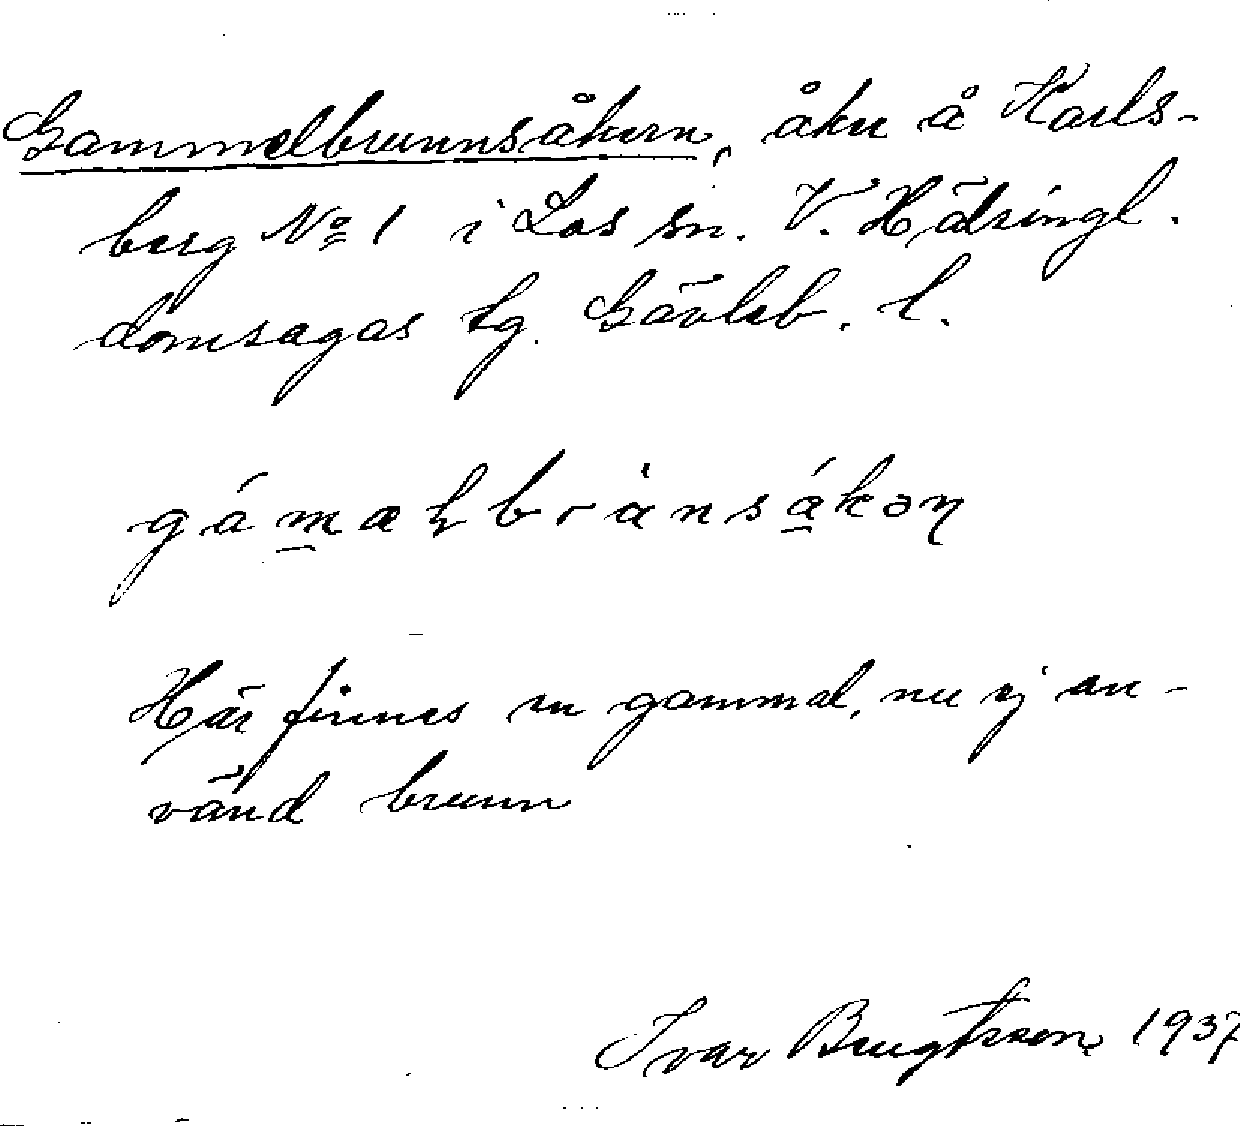 Gammelbrunnsåkern, åker å Karls-
berg No 1 i Los sn. V. Hälsingl.
domsagas tg. Gävleb. l.
Här finnes en gammal, nu ej an-
vänd brunn
Ivar Bengtsson 1937